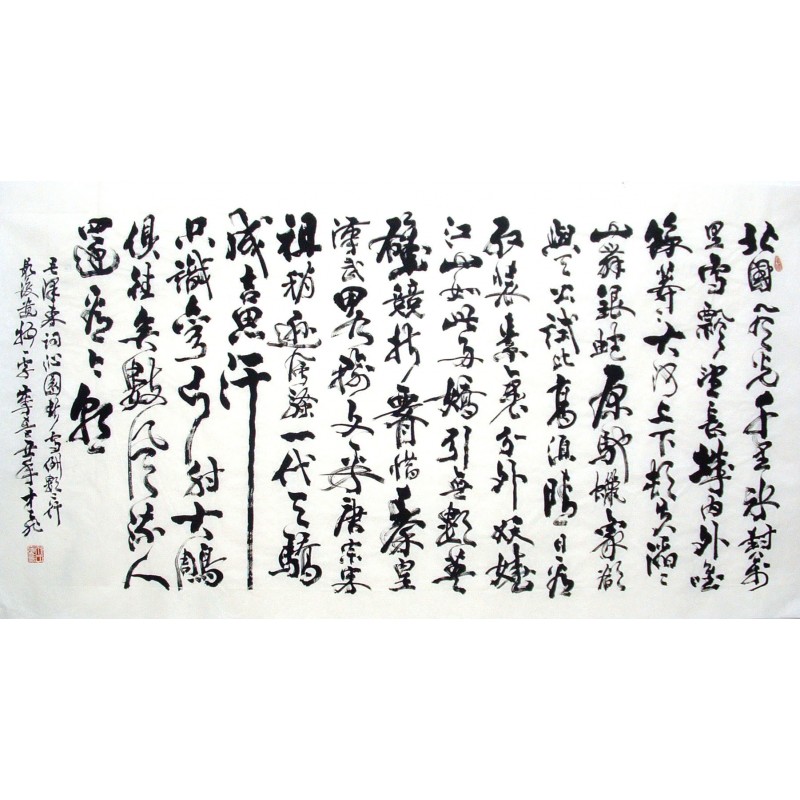 北國風光千里冰封萬
里雪飄望長城內外唯
餘莽々大河上下頓失滔々
山舞銀蛇原馳蠟象欲
與天公試比高須晴日看
紅裝素裹分外妖嬈
江山如此多嬌引無數英
雄競折腰惜秦皇
漢武略輸文采唐宗宋
祖稍遜風騷一代天驕
成吉思汗
只識彎弓射大鵰
俱往矣數風流人
還看今朝
毛澤東詞沁園春雪倒數二行
最後遺物一字